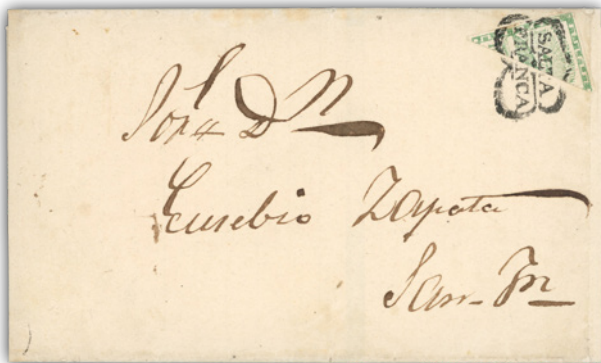 SALTA
FRANCA
Sor Dn
Eusebio Zapata
San Jn